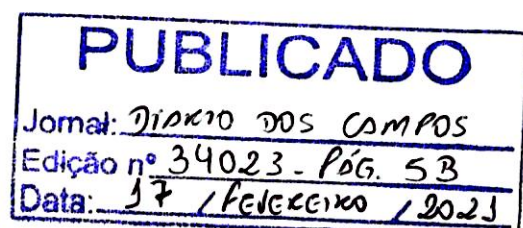 PUBLICADO
Jornal: DIARIO DOS CAMPOS
Edição nº 34023 - PÁG. 5B
Data: 17 / FEVEREIRO / 2021